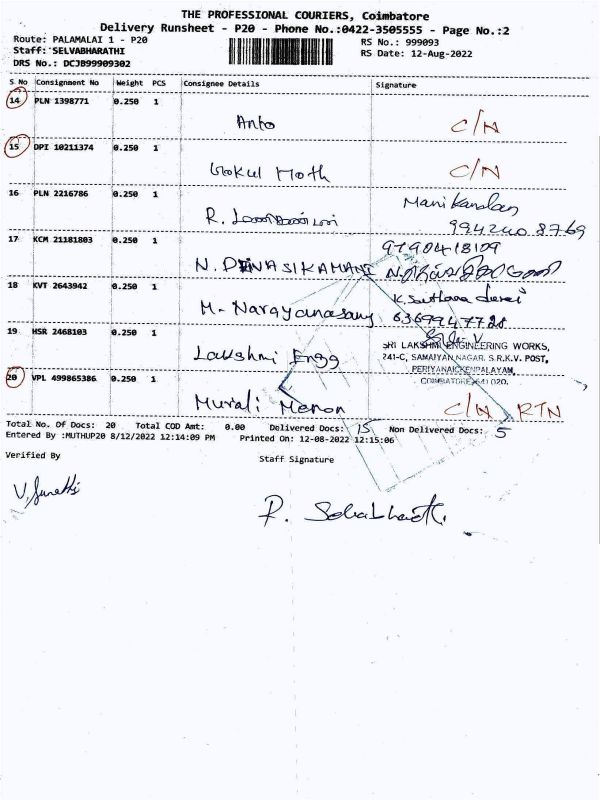 THE PROFESSIONAL COURIERS, Coimbatore
Delivery Runsheet - P20 - Phone No.:0422-3505555 - Page No.:2
Route: PALAMALAI 1 - P20 RS No.: 999093
Staff: SELVABHARATHI RS Date: 12-Aug-2022
DRS No.: DCJB99909302
S No Consignment No Weight PCS Consignee Details Signature
14 PLN 1398771 0.250 1
Anto C/N
15 DPI 10211374 0.250 1
Gokul Moth C/N
16 PLN 2216786 0.250 1 Manikandan
R. 994240 8769
17 KCM 21181803 0.250 1 9790418109
N. DINASIKAMANI
18 KVT 2643942 0.250 1 K. Suthara durai
M. Narayanasamy 6369947728
19 HSR 2468103 0.250 1
SRI LAKSHMI ENGINEERING WORKS,
Lakshmi Engg 241-C, SAMAIYAN NAGAR, S.R.K.V. POST,
PERIYANAICKENPALAYAM,
20 VPL 499865386 0.250 1 COIMBATORE-641 020.
Murali Menon C/N RTN
Total No. Of Docs: 20 Total COD Amt: 0.00 Delivered Docs: 15 Non Delivered Docs: 5
Entered By :MUTHUP20 8/12/2022 12:14:09 PM Printed On: 12-08-2022 12:15:06
Verified By Staff Signature
P. Selvabharathi